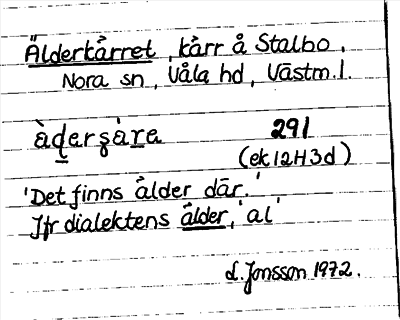 Älderkärret, kärr å Stalbo,
Nora sn, Våla hd, Västm. l.
àd̲ers̨àr̲e 291
(ek 12H3d)
'Det finns ålder där.'
Jfr dialektens ålder, 'al'
L. Jonsson 1972.